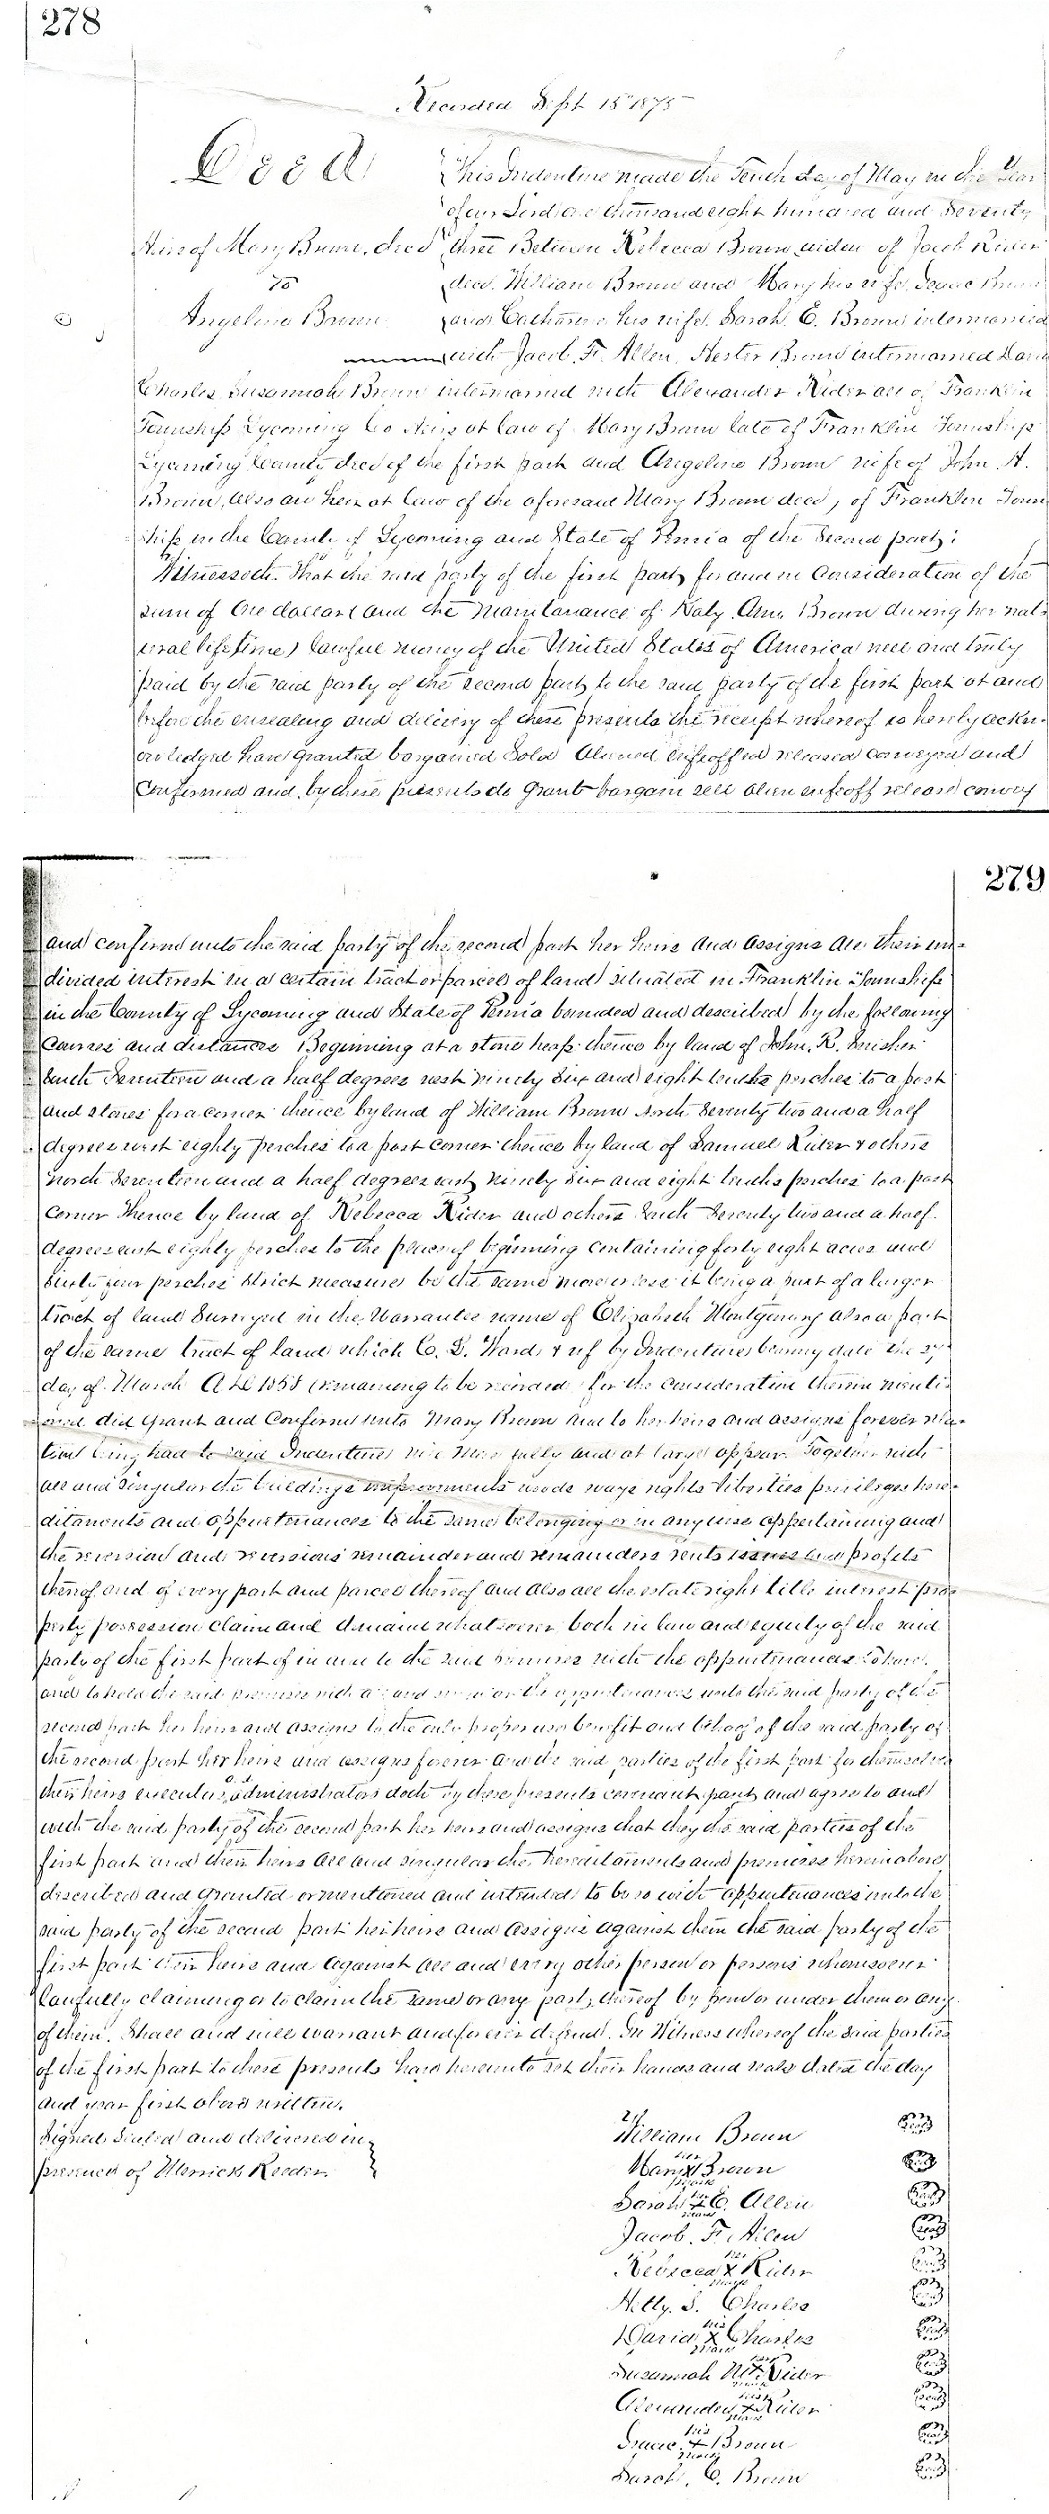 278
Recorded Sept 15" 1875
Deed
This Indenture made the Tenth day of May in the Year
of our Lord one thousand eight hundred and Seventy
Heirs of Mary Brown, decd three Between Rebecca Brown widow of Jacob Rider
To
decd. William Brown and Mary his wife, Isaac Brown
Angeline Brown
and Catharine his wife, Sarah E. Brown intermarried
with Jacob F. Allen, Hester Brown intermarried David
Charles Susannah Brown intermarried with Alexander Rider all of Franklin
Township Lycoming Co Heirs at law of Mary Brown late of Franklin Township
Lycoming County decd of the first part and Angeline Brown wife of John A.
Brown, also an heir at law of the aforesaid Mary Brown decd, of Franklin Town
ship in the County of Lycoming and State of Penna of the Second party;
Witnesseth. That the said party of the first party for and in Consideration of the
sum of One dollar and the maintanance of Katy Ann Brown during her nat-
ural life time) lawful money of the United States of America well and truly
paid by the said party of the second party to the said party of the first part at and
before the ensealing and delivery of these presents the receipt whereof is hereby ackn-
owledged have granted bargained Sold Aliened enfeoffed released conveyed and
Confirmed and by these presents do Grant bargain sell alien enfeoff release convey
279
and confirm unto the said party of the second part her heirs and assigns All their un-
divided interest in a certain tract or parcel of land situated in Franklin Township
in the County of Lycoming and State of Penna bounded and described by the following
Courses and distances Beginning at a stone heap thence by land of John. R.
South Seventeen and a half degrees west ninety Six and eight tenths perches to a post
and stones for a corner thence by land of William Brown North Seventy two and a half
degrees west eighty perches to a post corner thence by land of Samuel Rider & others
North Seventeen and a half degrees east ninety Six and eight tenths perches to a post
corner Thence by land of Rebecca Rider and others South Seventy two and a half
degrees east eighty perches to the place of beginning Containing forty eight acres and
Sixty four perches Strict measure be the same more or less it being a part of a larger
tract of land Surveyed in the Warrantee name of Elizabeth Montgomery also a part
of the same tract of land which C. D. Wards & wf by Indenture bearing date the 27
day of March A.D. 1858 remaining to be recorded for the consideration therein menti-
oned did Grant and Confirm unto Mary Brown and to her heirs and assigns forever rela-
tion being had to said Indenture will More fully and at large appear. Together with
all and Singular the buildings improvements woods ways rights liberties privileges here-
ditaments and appurtenances to the same belonging or in any wise appertaining and
the reversion and reversions remainder and remainders rents issues and profits
thereof and of every part and parcel thereof and also all the estate right title interest pro-
perty possession claim and demand whatsoever both in law and equity of the said
party of the first part of in and to the said premises with the appurtenances To have
and to hold the said premises with all and singular the appurtenances unto the said party of the
second part her heirs and assigns to the only proper use benefit and behoof of the said party of
the second part her heirs and assigns forever and the said parties of the first part for themselves
their heirs executors administrators doth by these presents covenant part and agree to and
with the said party of the second part her heirs and assigns that they the said parties of the
first part and their heirs All and Singular the hereditaments and premises hereinabove
described and granted or mentioned and intended to be so with appurtenances unto the
said party of the second part her heirs and assigns against them the said party of the
first part their heirs and against all and every other person or persons whomsoever
lawfully claiming or to claim the same or any part thereof by from or under them or any
of them. Shall and will warrant and forever defend. In Witness whereof the said parties
of the first part to these presents have hereunto set their hands and seals dated the day
and year first above written.
Signed Sealed and delivered in
presence of Merrick Reeder.
William Brown Seal
her
Mary X Brown Seal
mark
her
Sarah X E. Allen Seal
mark
Jacob. F. Allen Seal
her
Rebecca X Rider Seal
mark
Hetty. S. Charles Seal
his
David X Charles Seal
mark
her
Susannah M X Rider Seal
mark
his
Alexander X Rider Seal
mark
his
Isaac. X Brown Seal
mark
Sarah. C. Brown Seal